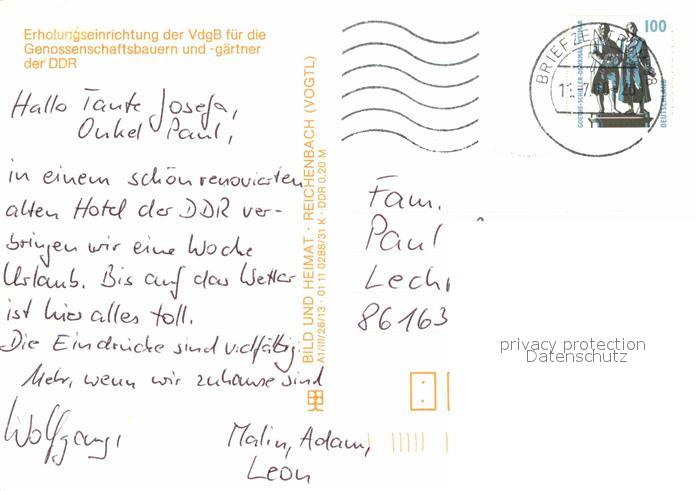 Erholungseinrichtung der VdgB für die
Genossenschaftsbauern und -gärtner
der DDR
Hallo Tante Josefa,
Onkel Paul,
in einem schön renovierten
alten Hotel der DDR ver-
bringen wir eine Woche
Urlaub. Bis auf das Wetter
ist hier alles toll.
Die Eindrücke sind vielfältig.
Mehr, wenn wir zuhause sind
Wolfgang,
Malin, Adam,
Leon
BILD UND HEIMAT · REICHENBACH (VOGTL)
A1/III/26/13 · 01 11 0288/31 K · DDR 0,20 M
BRIEFZENTRUM
100
GOETHE-SCHILLER-DENKMAL
DEUTSCHLAND
Fam.
Paul
Lech
86163
privacy protection
Datenschutz